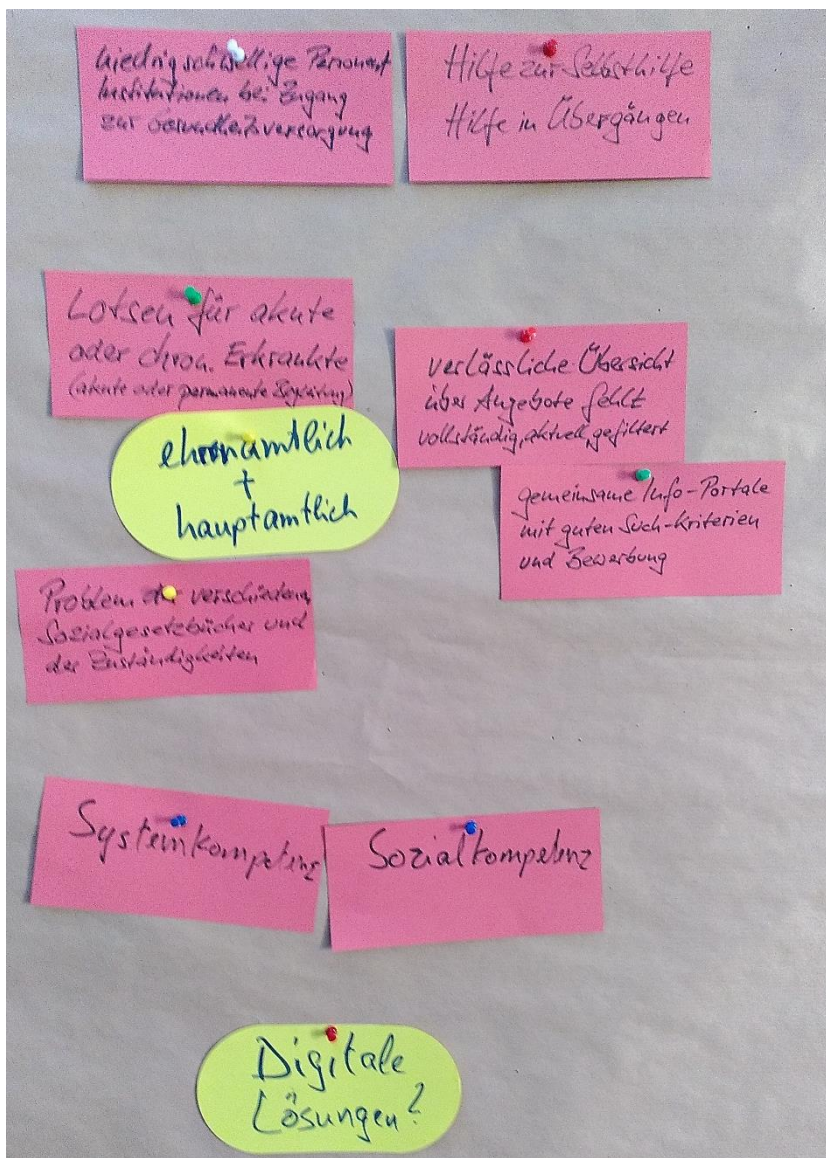 niedrigschwellige Personen +
Institutionen bei Zugang
zur Gesundheitsversorgung
Hilfe zur Selbsthilfe
Hilfe in Übergängen
Lotsen für akute
oder chron. Erkrankte
(akute oder permanente Begleitung)
ehrenamtlich
+
hauptamtlich
verlässliche Übersicht
über Angebote fehlt
vollständig, aktuell, gefiltert
gemeinsame Info-Portale
mit guten Such-Kriterien
und Bewerbung
Problem der verschiedenen
Sozialgesetzbücher und
der Zuständigkeiten
Systemkompetenz
Sozialkompetenz
Digitale
Lösungen?